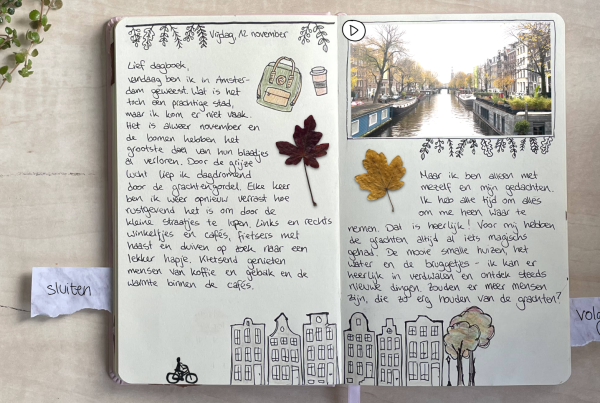 Vrijdag, 12 november
Lief dagboek,
vandaag ben ik in Amster-
dam geweest. Wat is het
toch een prachtige stad,
maar ik kom er niet vaak.
Het is alweer november en
de bomen hebben het
grootste deel van hun blaadjes
al verloren. Door de grijze
lucht liep ik dagdromend
door de grachtengordel. Elke keer
ben ik weer opnieuw verrast hoe
rustgevend het is om door de
kleine straatjes te lopen. Links en rechts
winkeltjes en cafés, fietsers met
haast en duiven op zoek naar een
lekker hapje. Kletsend genieten
mensen van koffie en gebak en de
warmte binnen de cafés.
sluiten
Maar ik ben alleen met
mezelf en mijn gedachten.
Ik heb alle tijd om alles
om me heen waar te
nemen. Dat is heerlijk! Voor mij hebben
de grachten altijd al iets magisch
gehad. De mooie smalle huizen, het
water en de bruggetjes - ik kan er
heerlijk in verdwalen en ontdek steeds
nieuwe dingen. Zouden er meer mensen
zijn, die zo erg houden van de grachten?